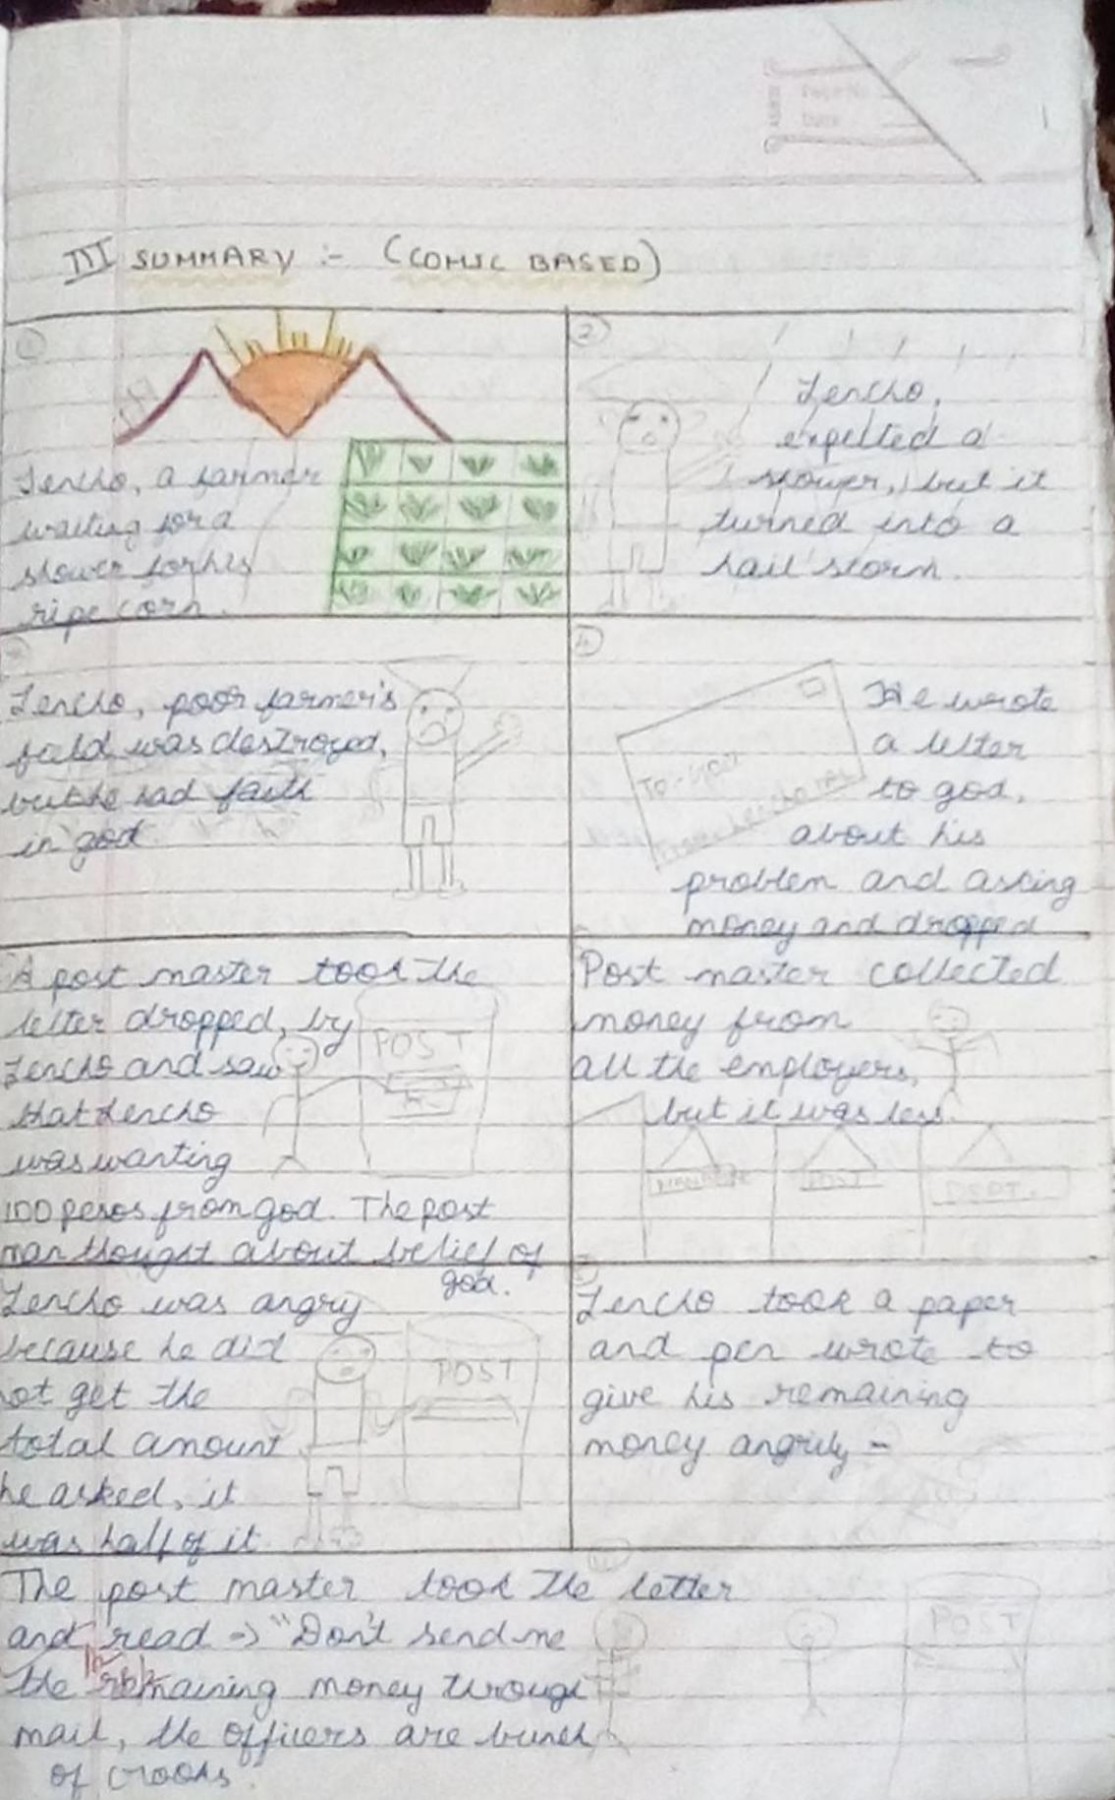 1
III SUMMARY :- (COMIC BASED)
1
Lencho, a farmer
waiting for a
shower for his
ripe corn.
2
Lencho,
expected a
shower, but it
turned into a
hail storm.
Lencho, poor farmer's
feild was destroyed,
but he had faith
in god
4
He wrote
a letter
to god,
about his
problem and asking
money and dropped
To - GOD
From: Lencho
A post master took the
letter dropped, by
Lencho and saw
that Lencho
was wanting
100 pesos from god. The post
man thought about belief of
god.
POST
Post master collected
money from
all the employers,
but it was less.
POST
DEPT.
Lencho was angry
because he did
not get the
total amount
he asked, it
was half of it.
POST
Lencho took a paper
and pen wrote to
give his remaining
money angrily -
The post master took the letter
and read -> "Don't send me
the remaining money through
mail, the officers are bunch
of crooks".
POST